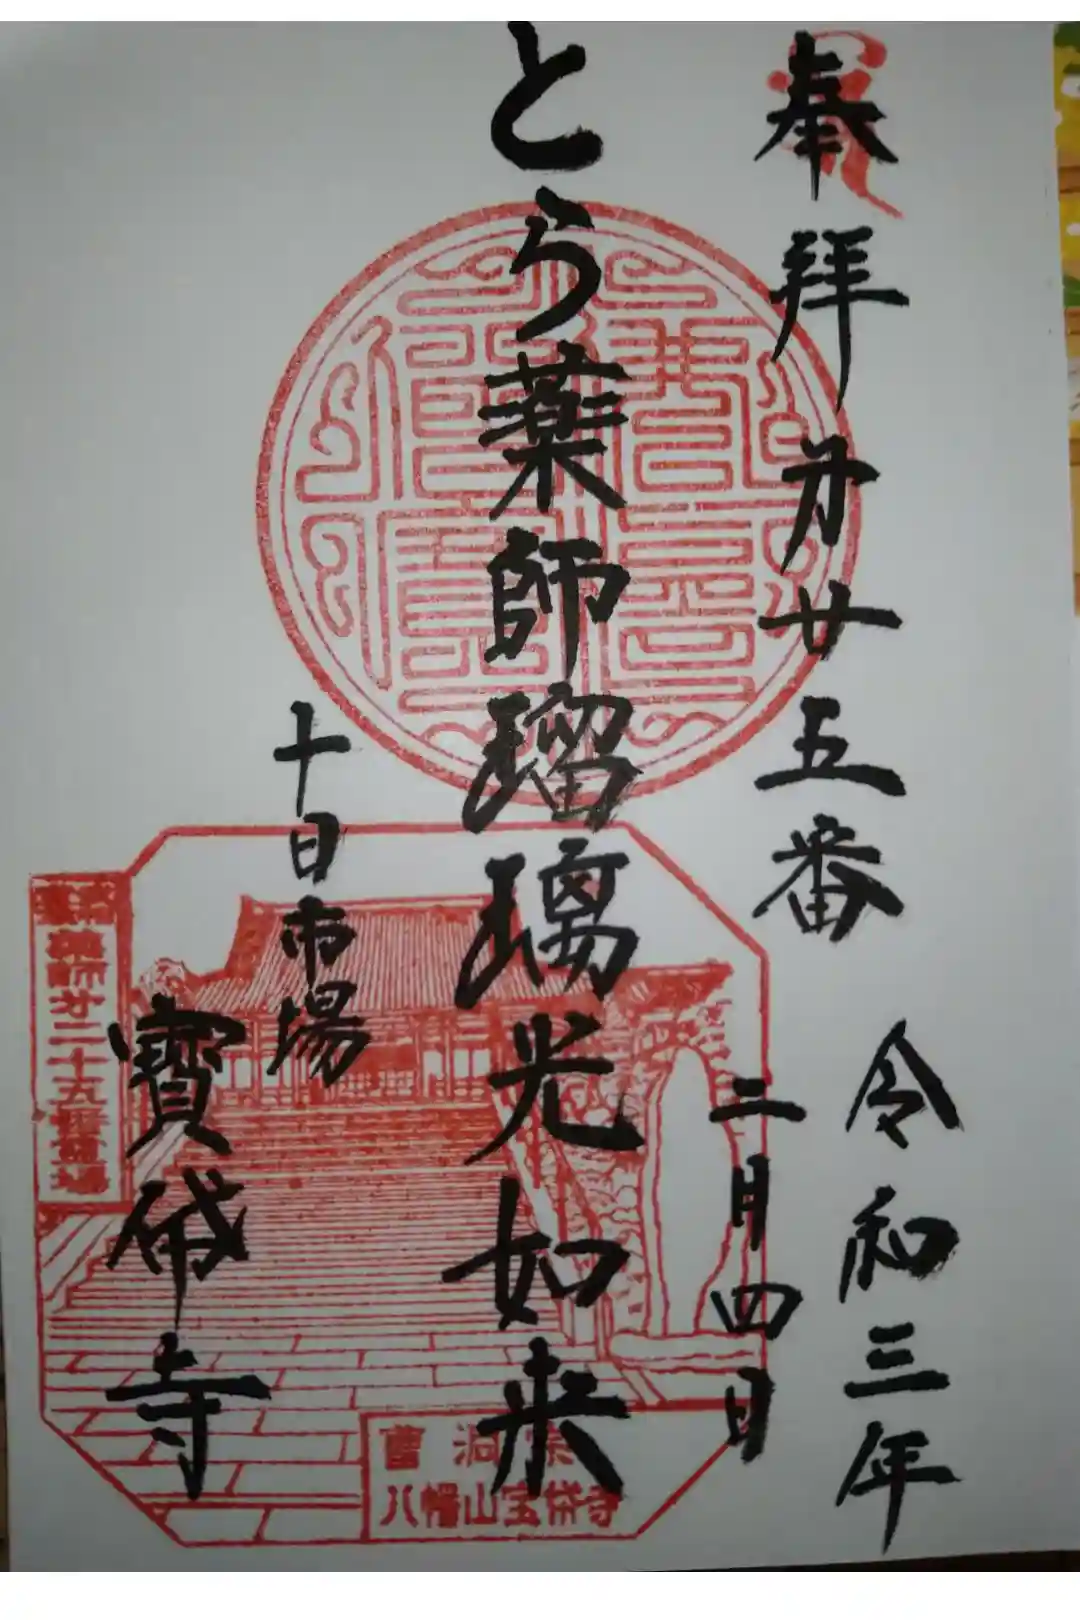 奉拝
第廿五番
令和三年
二月四日
とら薬師瑠璃光如来
十日市場
寳帒寺
薬師廿二十五番霊場
曹洞宗
八幡山宝帒寺